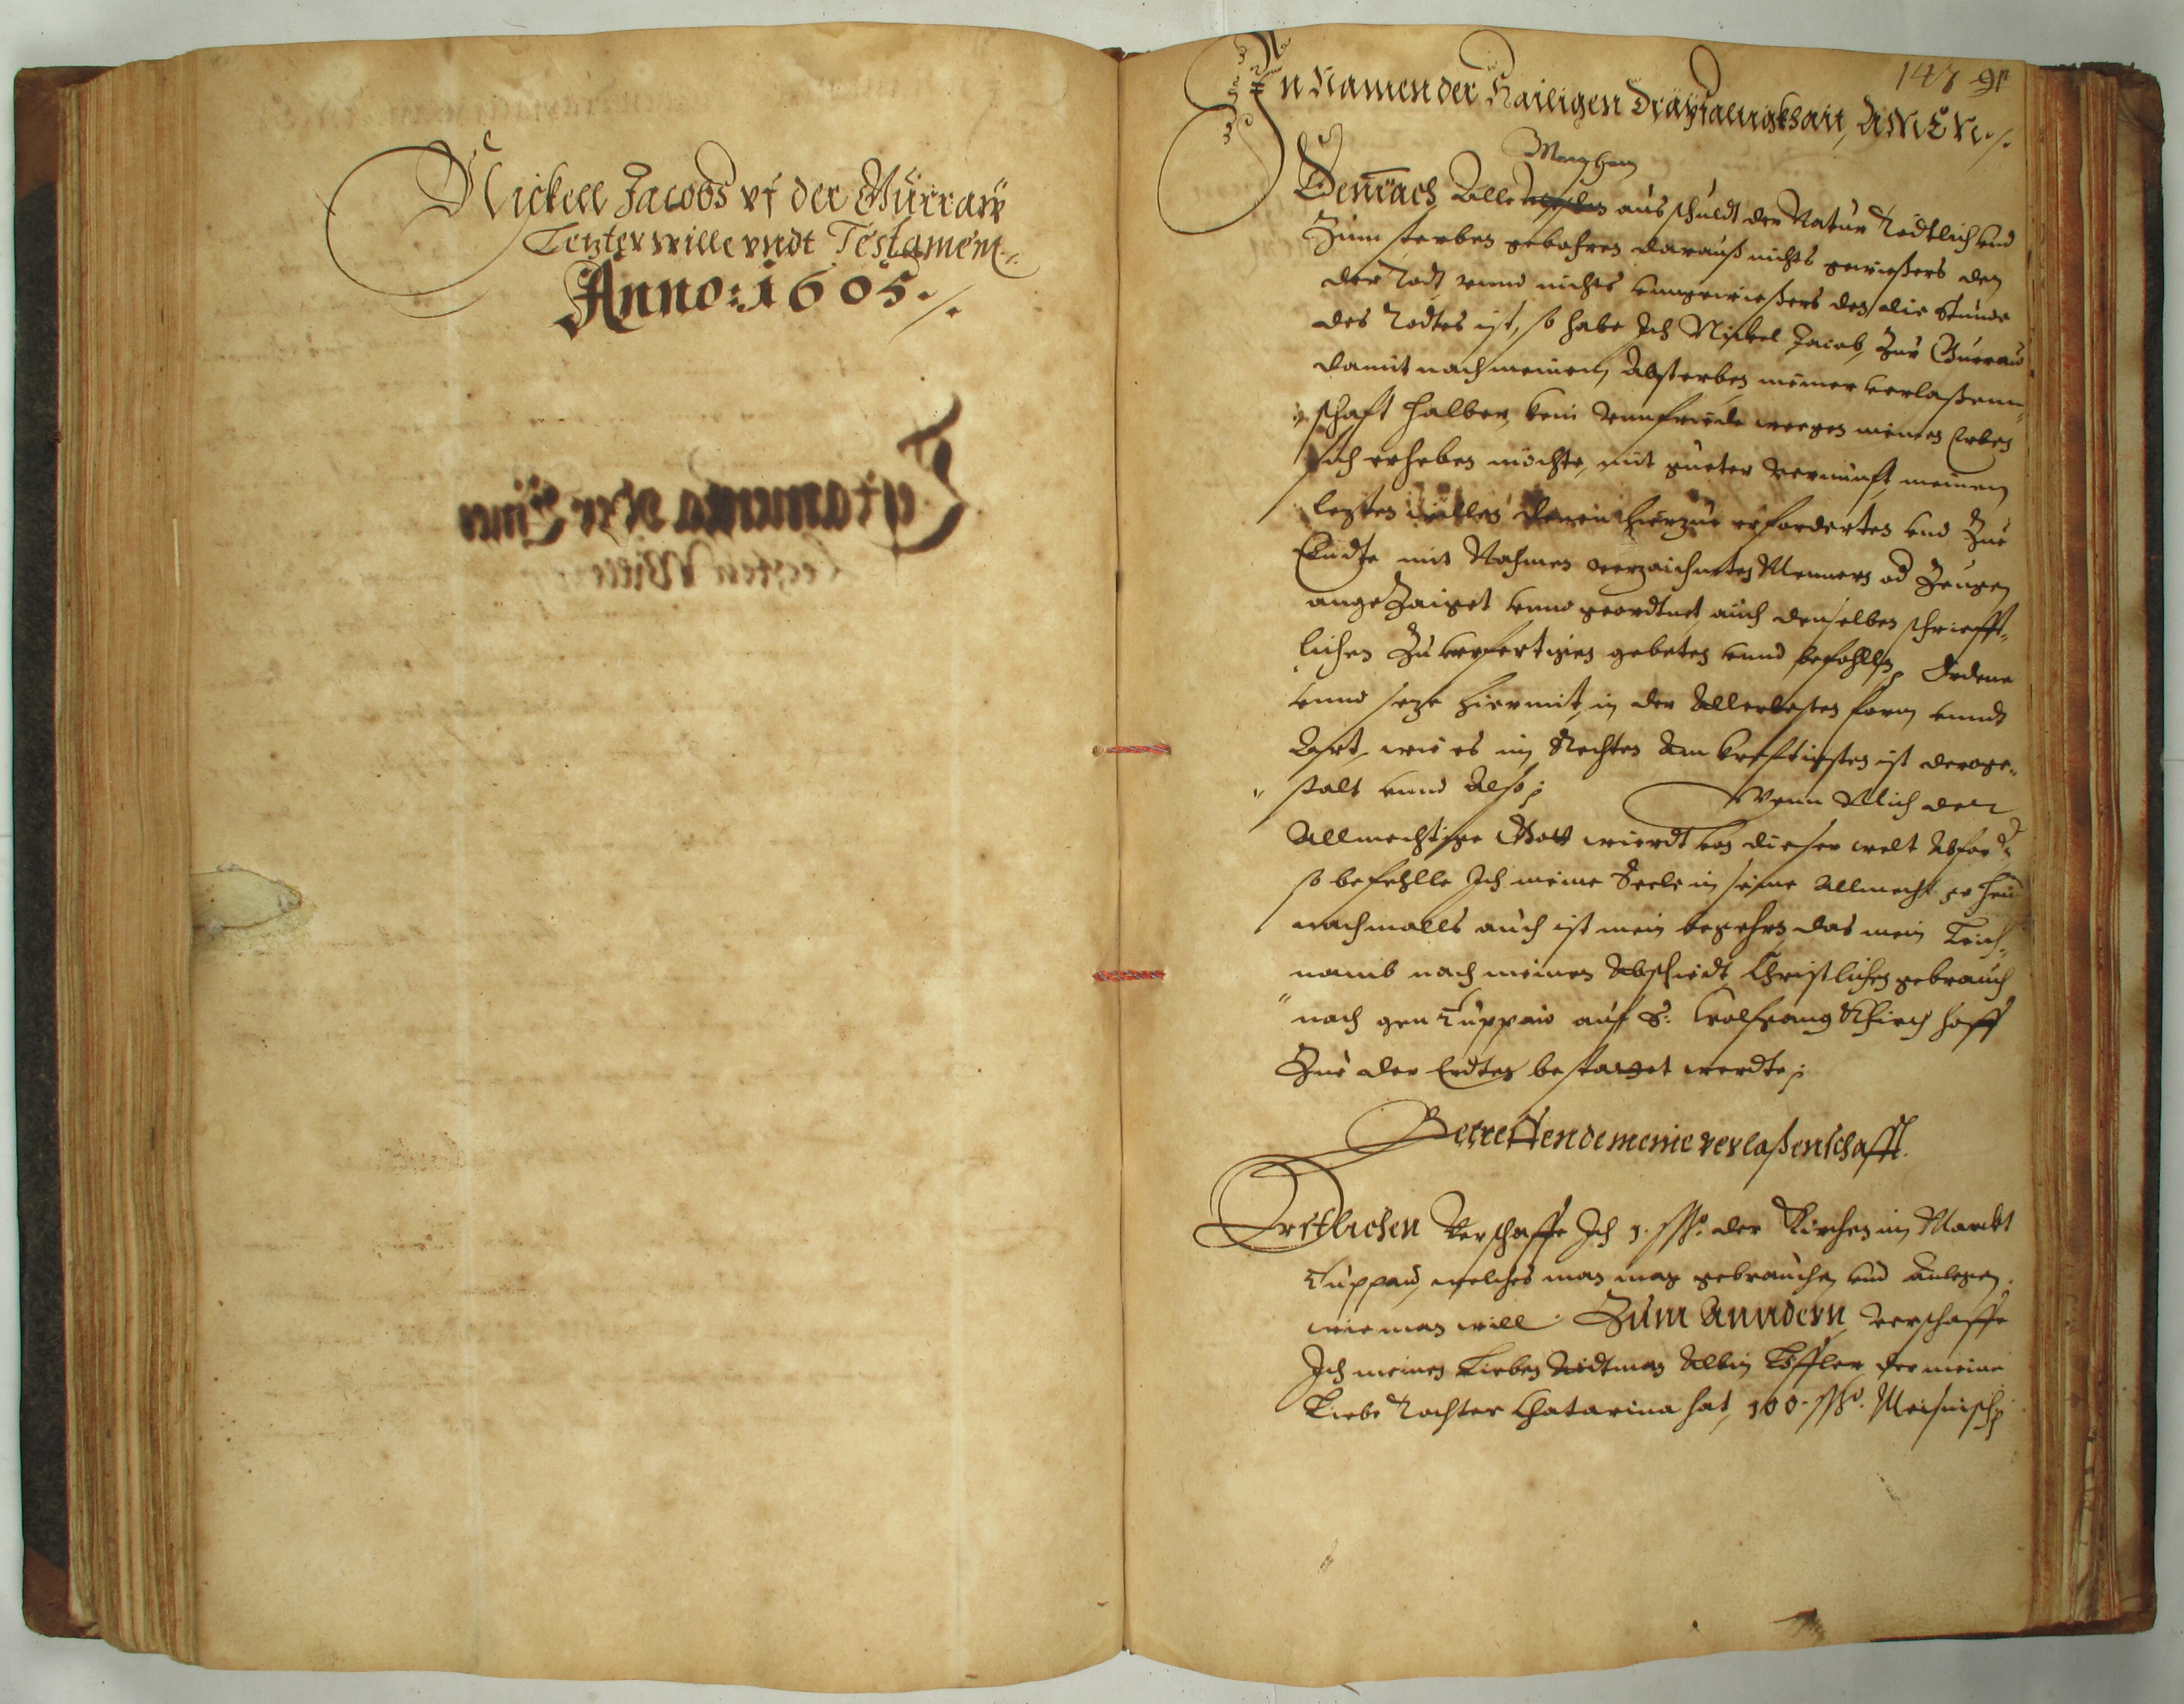 Nickell Jacobs vf der Gurraw
Letzter wille vndt Testament
Anno: 1605 ./.
147 91
In Namen der Hailigen Drayfaltigkhait, AMEN ./.
Menschen
Demnach Alle aus schuldt der Natur Todtlich vnd
Zum sterben gebohren darauß nichts gewießers den
der Todt vnnd nichts vnngewießers den die Stunde
des Todtes ist, so habe Ich Nickel Jacob, Zur Gurraw
damit nach meinen Absterben meiner verlaßenn„
„schaft halber, kein vnnfriede wegen meinen Erben
sich erheben möchte, mit gueter vernunft, meinen
lezten willen denen hierzue erforderten vnd Zue
Ende mit Nahmen verzaichneten Mennern od Zeugen
angeZaiget vnnd geordtnet auch denselben schriefft„
lichen Zu verfertigen gebeten vnnd befohllen, Ordene
vnnd seze hiermit, in der Allerbesten form vnndt
Art, wie es im Rechten Am krefftigsten ist derge„
„stalt vnnd Also: Wenn Mich der
Allmechtige Gott wierdt von dieser welt Abford
so befehlle Ich meine Seele in seine Allmacht
nachmalls auch ist mein begehrn das mein Leich„
namb nach meinen Abschiedt Christlichen gebrauch
„nach gen Luppaw auf S: Wolfgang Khirchhoff
Zue der Erdten bestatget werdte:
Betreffende meine verlaßenschafft.
Erstlichen Verschaffe Ich 1. ßo. der Kirchen im Marckt
Luppaw, welches man mag gebrauchen vnd Anlegen
wie man will. Zum Anndern verschaffe
Ich meinen Lieben Aidtman Albin Löffler, der meine
Liebe Tochter Chatarina hat, 100. ßo. Meisnisch